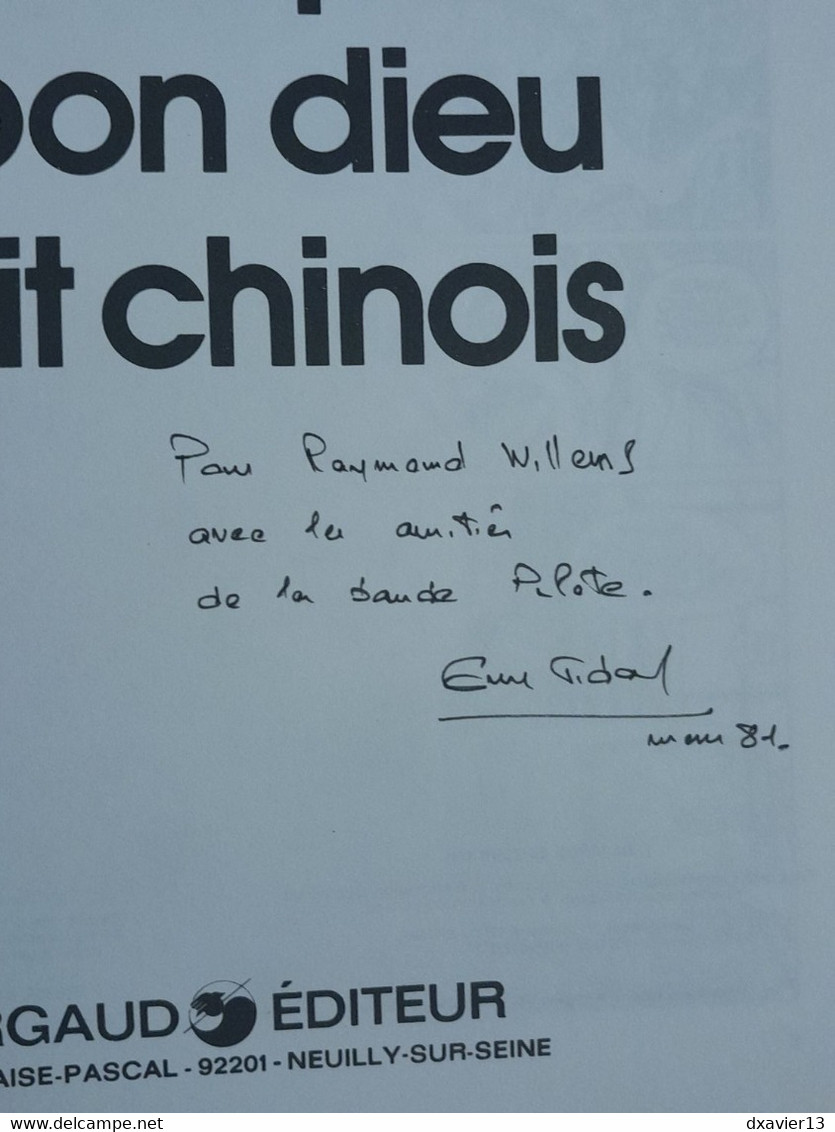 bon dieu
it chinois
Pour Raymond Willems
avec les amitiés
de la bande Pilote.
mars 81.
RGAUD ÉDITEUR
AISE-PASCAL - 92201 - NEUILLY-SUR-SEINE
www.delcampe.net
dxavier13